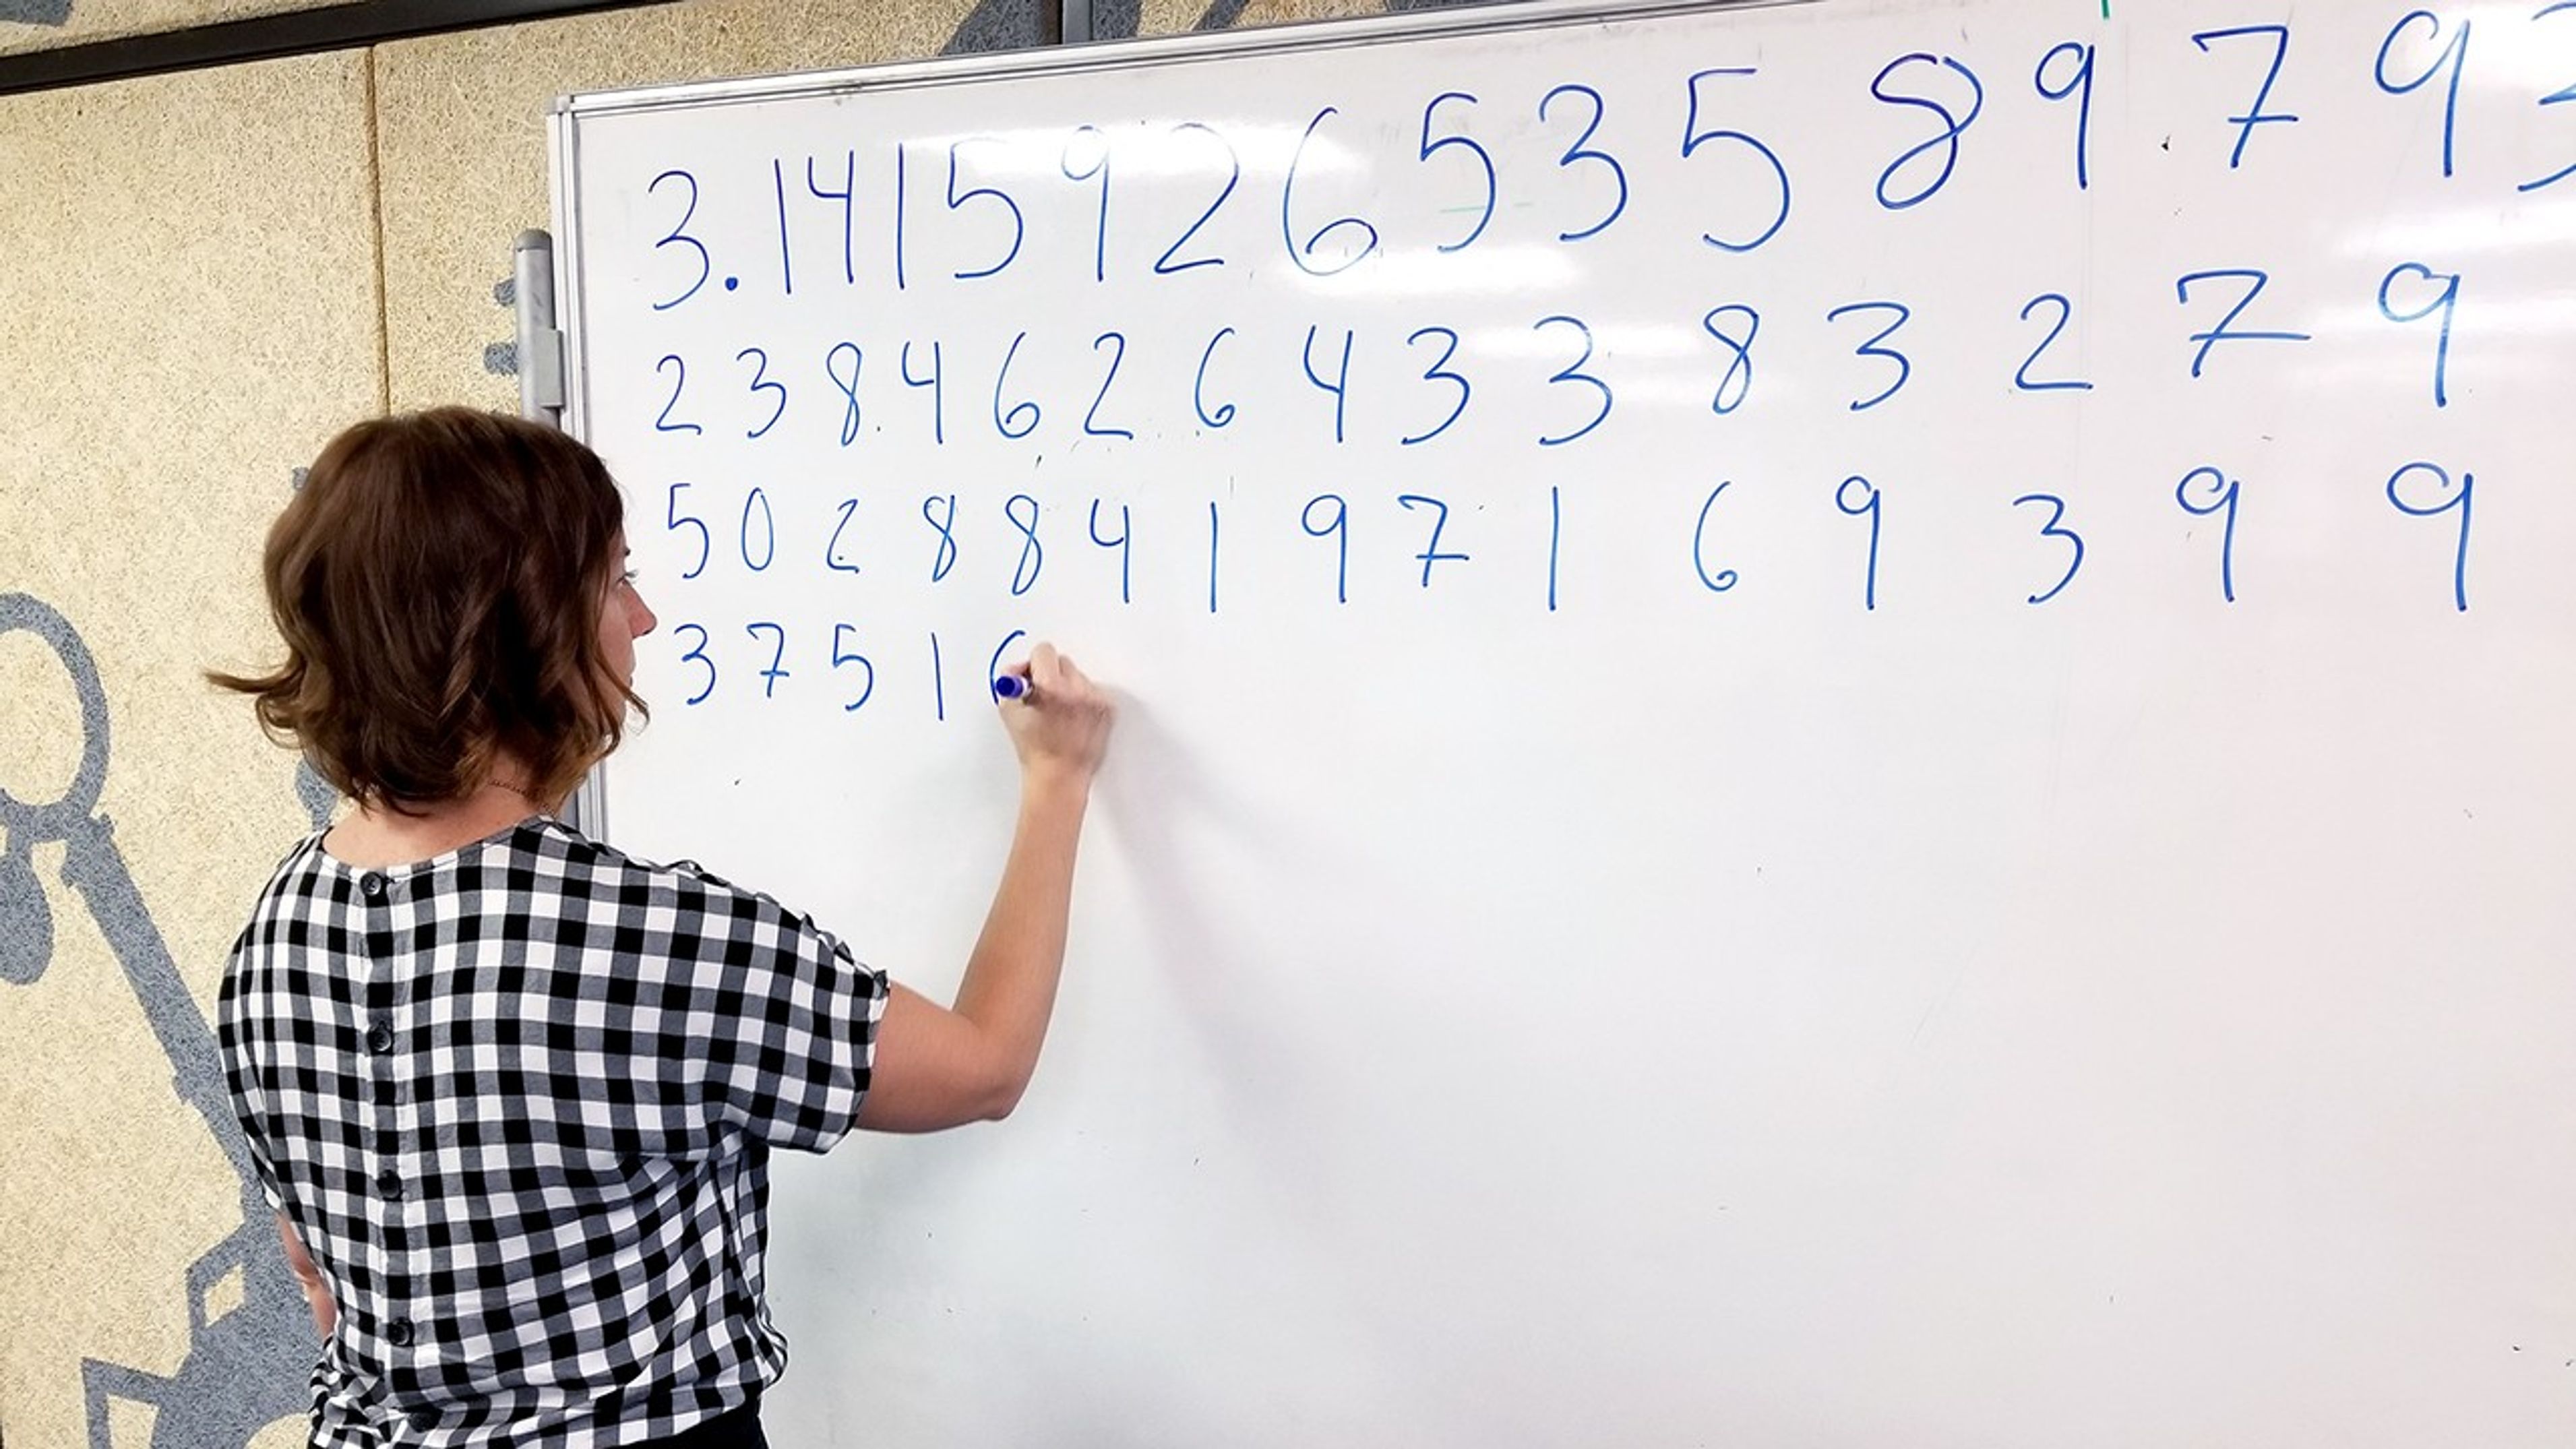 3.141592653589793
238462643383279
502884197169399
37516